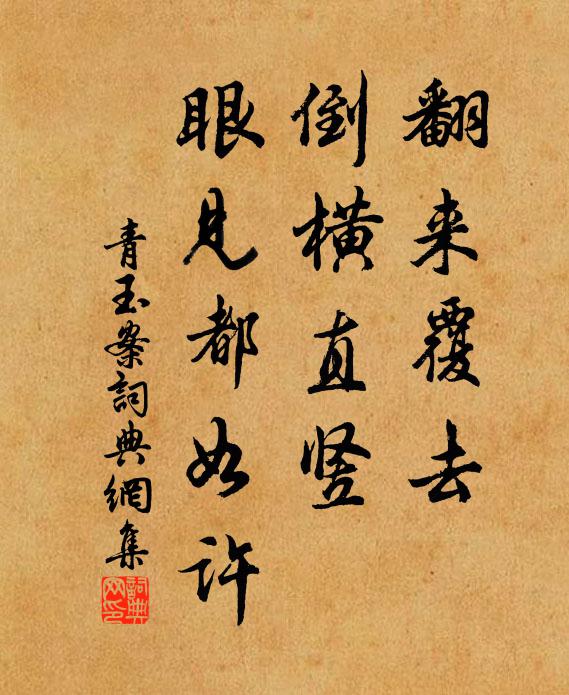 翻来覆去
倒横直竖
眼见都如许
青玉案詞典網集
詞典网印